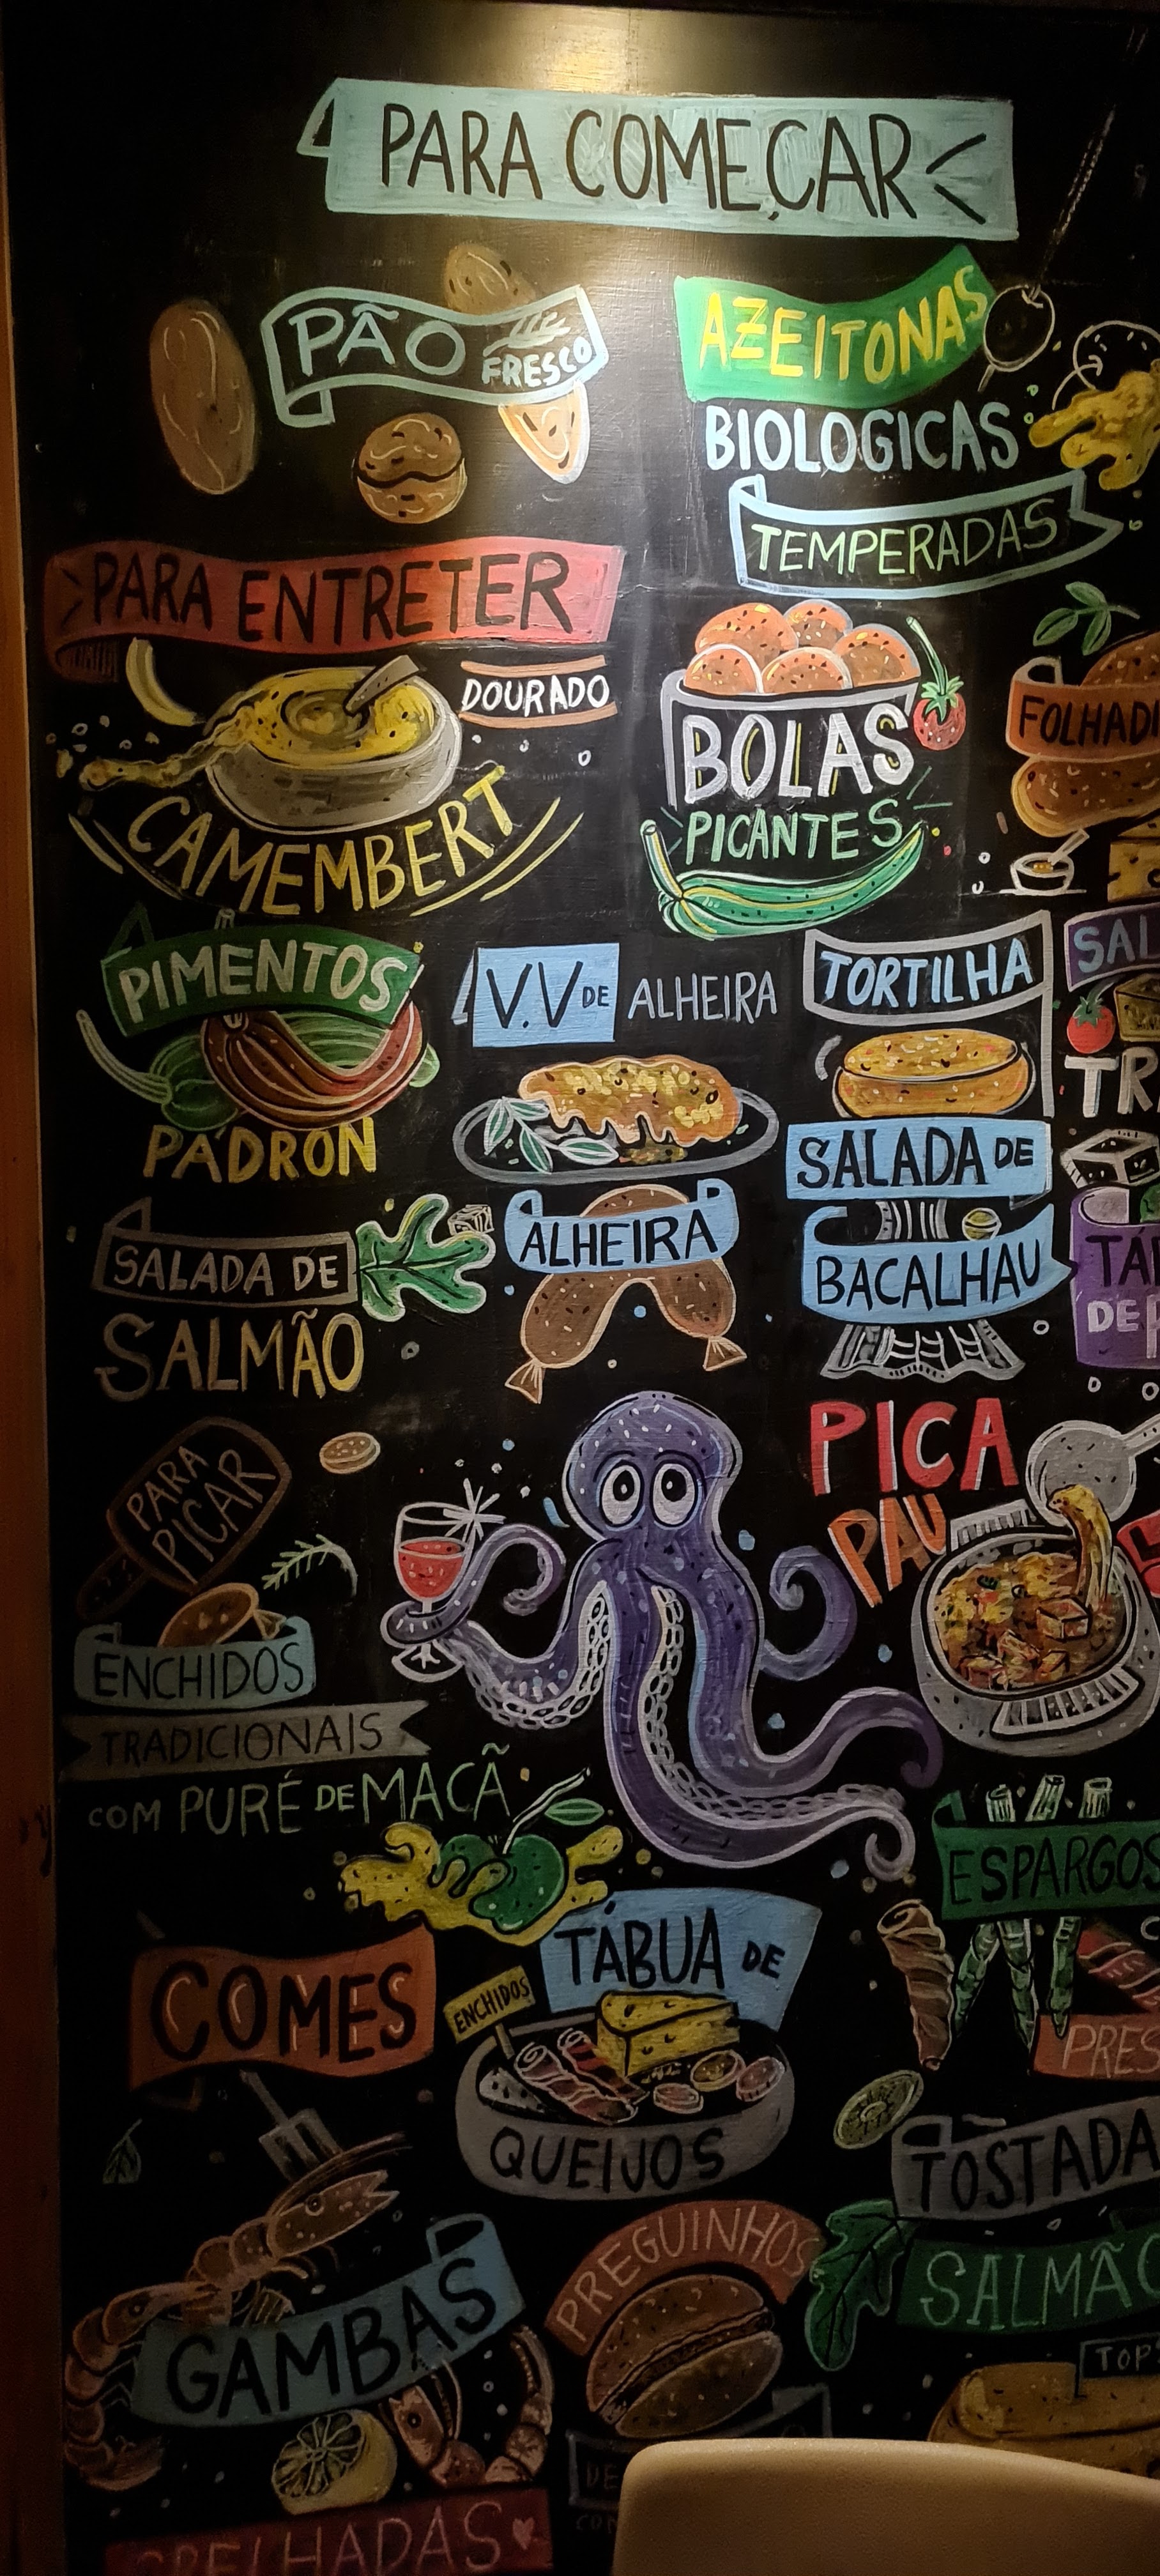 PARA COMEÇAR
PÃO FRESCO
AZEITONAS
BIOLOGICAS
TEMPERADAS
PARA ENTRETER
DOURADO
CAMEMBERT
BOLAS
PICANTES
PIMENTOS
PADRON
V.V DE ALHEIRA
TORTILHA
SALADA DE
SALMÃO
ALHEIRA
SALADA DE
BACALHAU
DE
PARA
PICAR
PICA
PAU
ENCHIDOS
TRADICIONAIS
COM PURÉ DE MAÇÃ
ESPARGOS
COMES
TÁBUA DE
ENCHIDOS
QUEIJOS
TOSTADA
SALMÃO
GAMBAS
PREGUINHOS
GRELHADAS